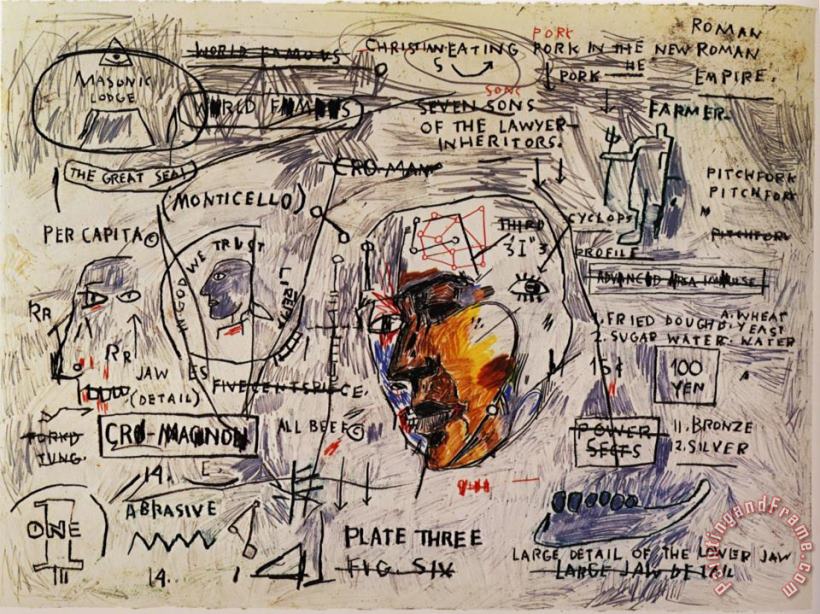 ROMAN
PORK
WORLD FAMOUS
CHRISTIAN EATING
PORK IN THE NEW ROMAN
S
HE
PORK
EMPIRE.
MASONIC
LODGE
SONS
WORLD FAMOUS
SEVEN SONS
FARMER.
OF THE LAWYER-
INHERITORS.
CRO-MAN
THE GREAT SEAL
PITCHFORK
PITCHFORK
(MONTICELLO)
THIRD
"3I"S
CYCLOPS
PITCHFORK
PER CAPITA©
IN GOD WE TRUST
LIBERTY
PROFILE
ADVANCED AREA IMPULSE
RR
1. FRIED DOUGH:
A. WHEAT
YEAST
2. SUGAR WATER.
WATER
RR
JAW
(DETAIL)
ES
FIVE CENTS PIECE.
15¢
100
YEN
CRO-MAGNON
ALL BEEF©
POWER
SECTS
11. BRONZE
2. SILVER
TUNG.
14.
E.
ONE
III
ABRASIVE
14.
PLATE THREE
FIG. SIX
LARGE DETAIL OF THE LOWER JAW
LARGE JAW DETAIL
PaintingandFrame.com